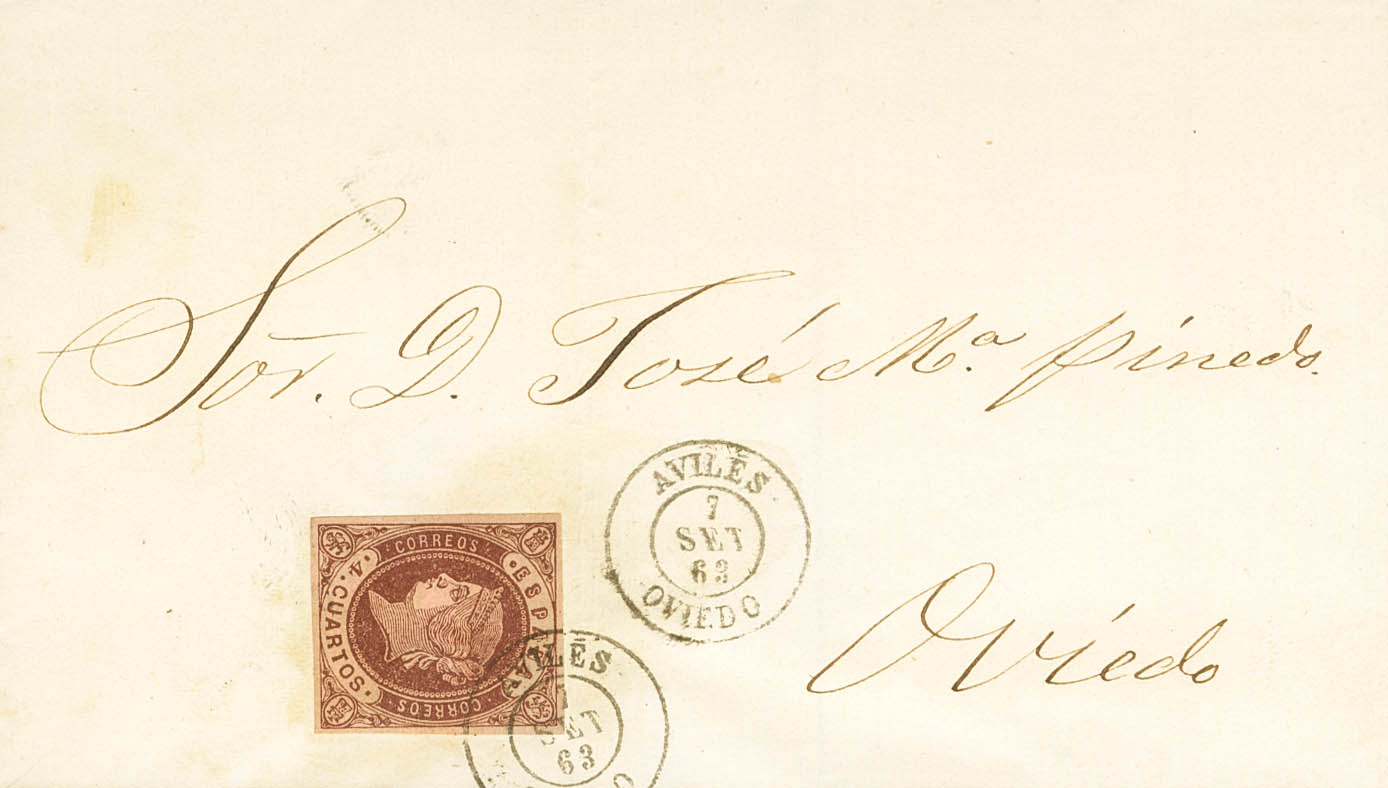 Sor. D. José Mª. Pinedo.
AVILÉS
7
SET
63
OVIEDO
CORREOS
ESPAÑA
4. CUARTOS.
CORREOS
AVILÉS
SET
63
Oviedo